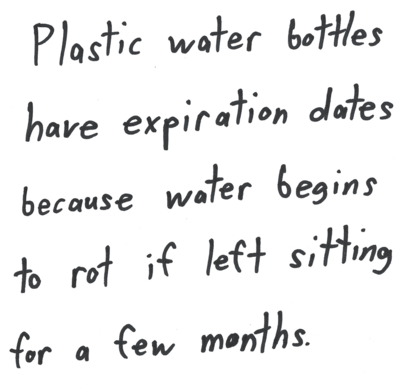 Plastic water bottles
have expiration dates
because water begins
to rot if left sitting
for a few months.